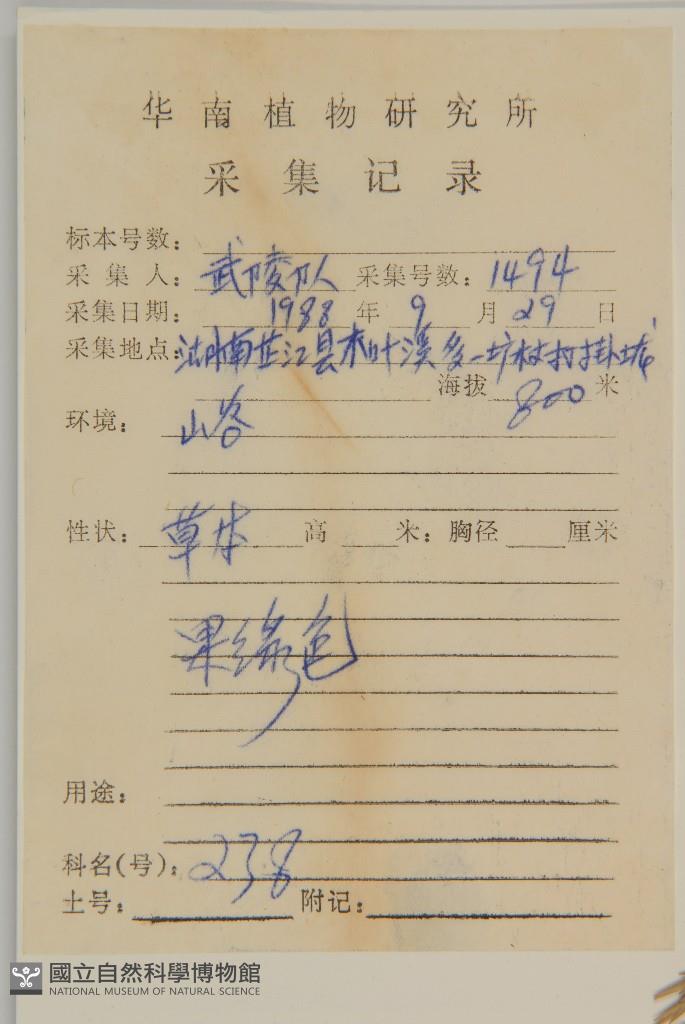 华南植物研究所
采集记录
标本号数：
采集人：武陵队 采集号数：1494
采集日期：1988年9月29日
采集地点：湖南芷江县木叶溪乡一坊村打掛坡
海拔800米
环境：山谷
性状：草本 高 米：胸径 厘米
果绿色
用途：
科名(号)：238
土号： 附记：
國立自然科學博物館
NATIONAL MUSEUM OF NATURAL SCIENCE